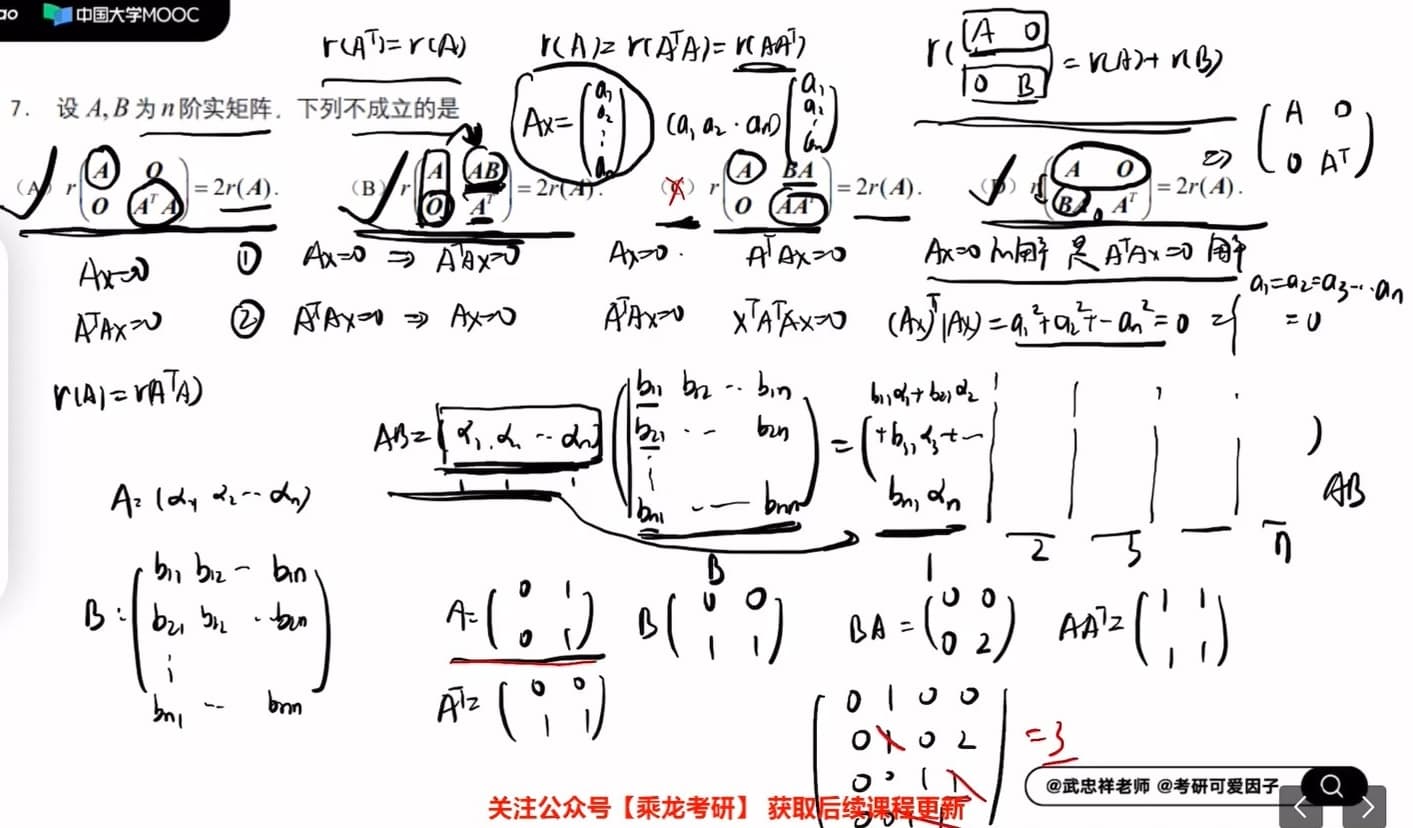 中国大学MOOC
r(Aᵀ)=r(A) r(A)=r(AᵀA)=r(AAᵀ) r(A 0 0 B) = r(A)+r(B)
7. 设 A,B 为 n 阶实矩阵. 下列不成立的是
Ax=(a₁ a₂ ⋮ aₙ) (a₁ a₂ · aₙ)(a₁ a₂ ⋮ aₙ) ⇒ (A 0 0 Aᵀ)
(A) r(A O O AᵀA)=2r(A). (B) r(A AB O Aᵀ)=2r(A). (C) r(A BA O AAᵀ)=2r(A). (D) r(A O BA Aᵀ)=2r(A).
Ax=0 ① Ax=0 ⇒ AᵀAx=0 Ax=0. AᵀAx=0 Ax=0 的解 是 AᵀAx=0 解
a₁=a₂=a₃…aₙ
AᵀAx=0 ② AᵀAx=0 ⇒ Ax=0 AᵀAx=0 xᵀAᵀAx=0 (Ax)ᵀ(Ax)=a₁²+a₂²+…aₙ²=0 ⇒ =0
r(A)=r(AᵀA)
AB=(α₁,α₂…αₙ)(b₁₁ b₁₂ … b₁ₙ b₂₁ … b₂ₙ ⋮ bₙ₁ … bₙₙ)=(b₁₁α₁+b₂₁α₂ +b₃₁α₃+… bₙ₁αₙ ) AB
A=(α₁, α₂…αₙ)
B 1 2 3 n
B:(b₁₁ b₁₂ … b₁ₙ b₂₁ b₂₂ … b₂ₙ ⋮ bₙ₁ … bₙₙ)
A=(0 1 0 1) B(0 0 1 1) BA=(0 0 0 2) AAᵀ=(1 1 1 1)
Aᵀ=(0 0 1 1)
0 1 0 0
0 1 0 2 =3
0 0 1 1
0 0 1 1
@武忠祥老师 @考研可爱因子
关注公众号【乘龙考研】 获取后续课程更新